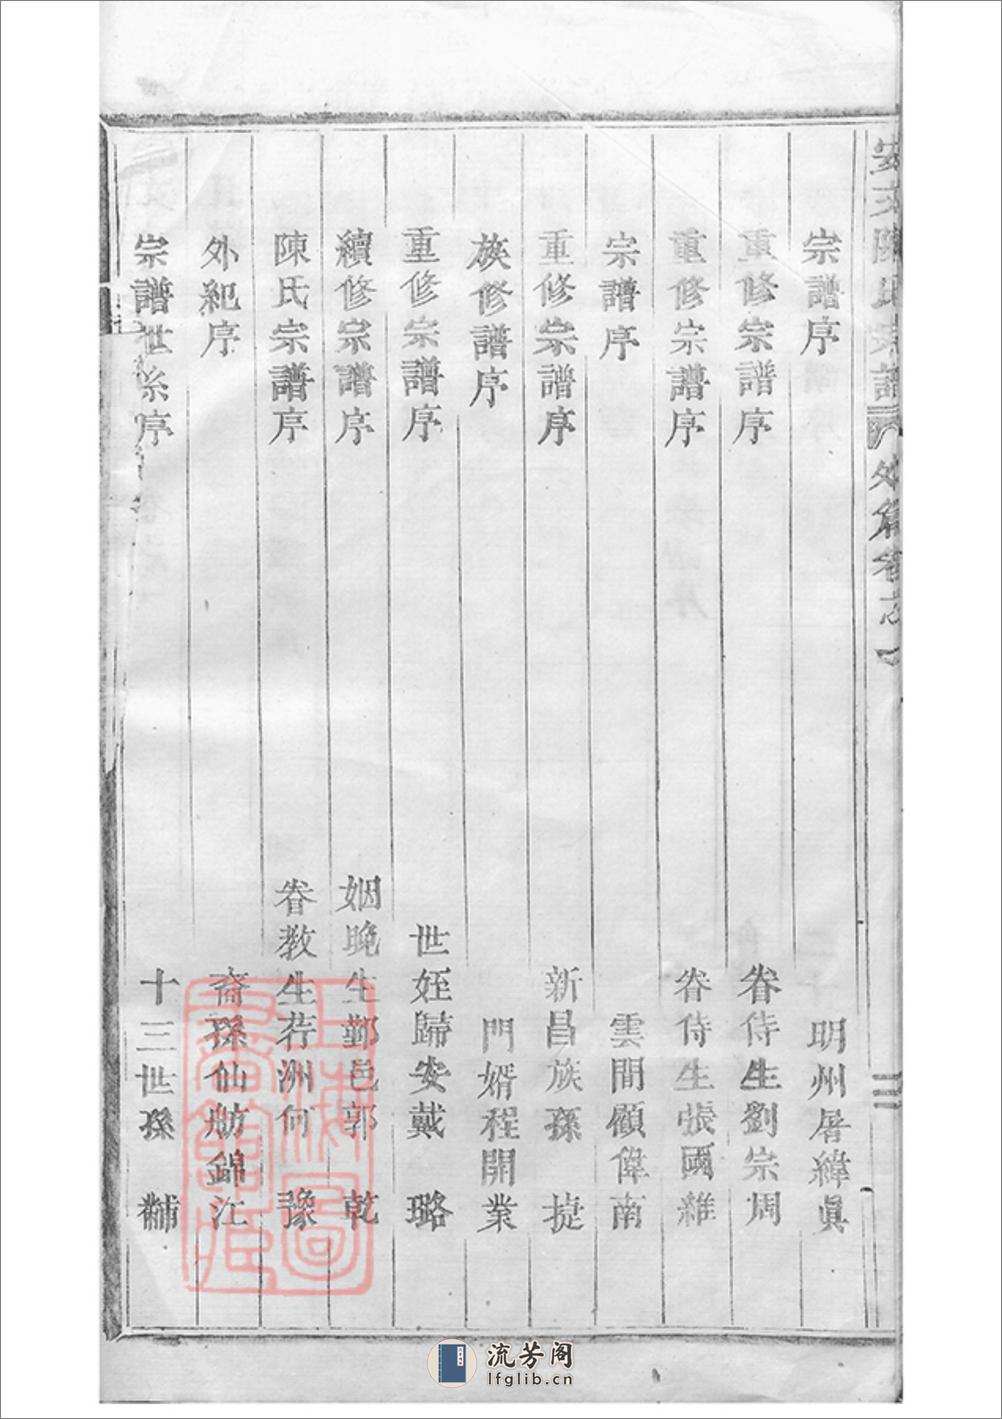 安文陳氏宗譜 外篇卷之一
宗譜序 明州屠緯眞
重修宗譜序 眷侍生劉宗周
重修宗譜序 眷侍生張國維
宗譜序 雲間顧偉南
重修宗譜序 新昌族孫 捷
族修譜序 門婿程開業
重修宗譜序 世姪歸安戴 璐
續修宗譜序 姻晚生鄞邑郭 乾
陳氏宗譜序 眷教生荇洲何 豫
外紀序 裔孫仙舫錦江
宗譜世系序 十三世孫 黼
上海圖書館藏
流芳阁
lfglib.cn